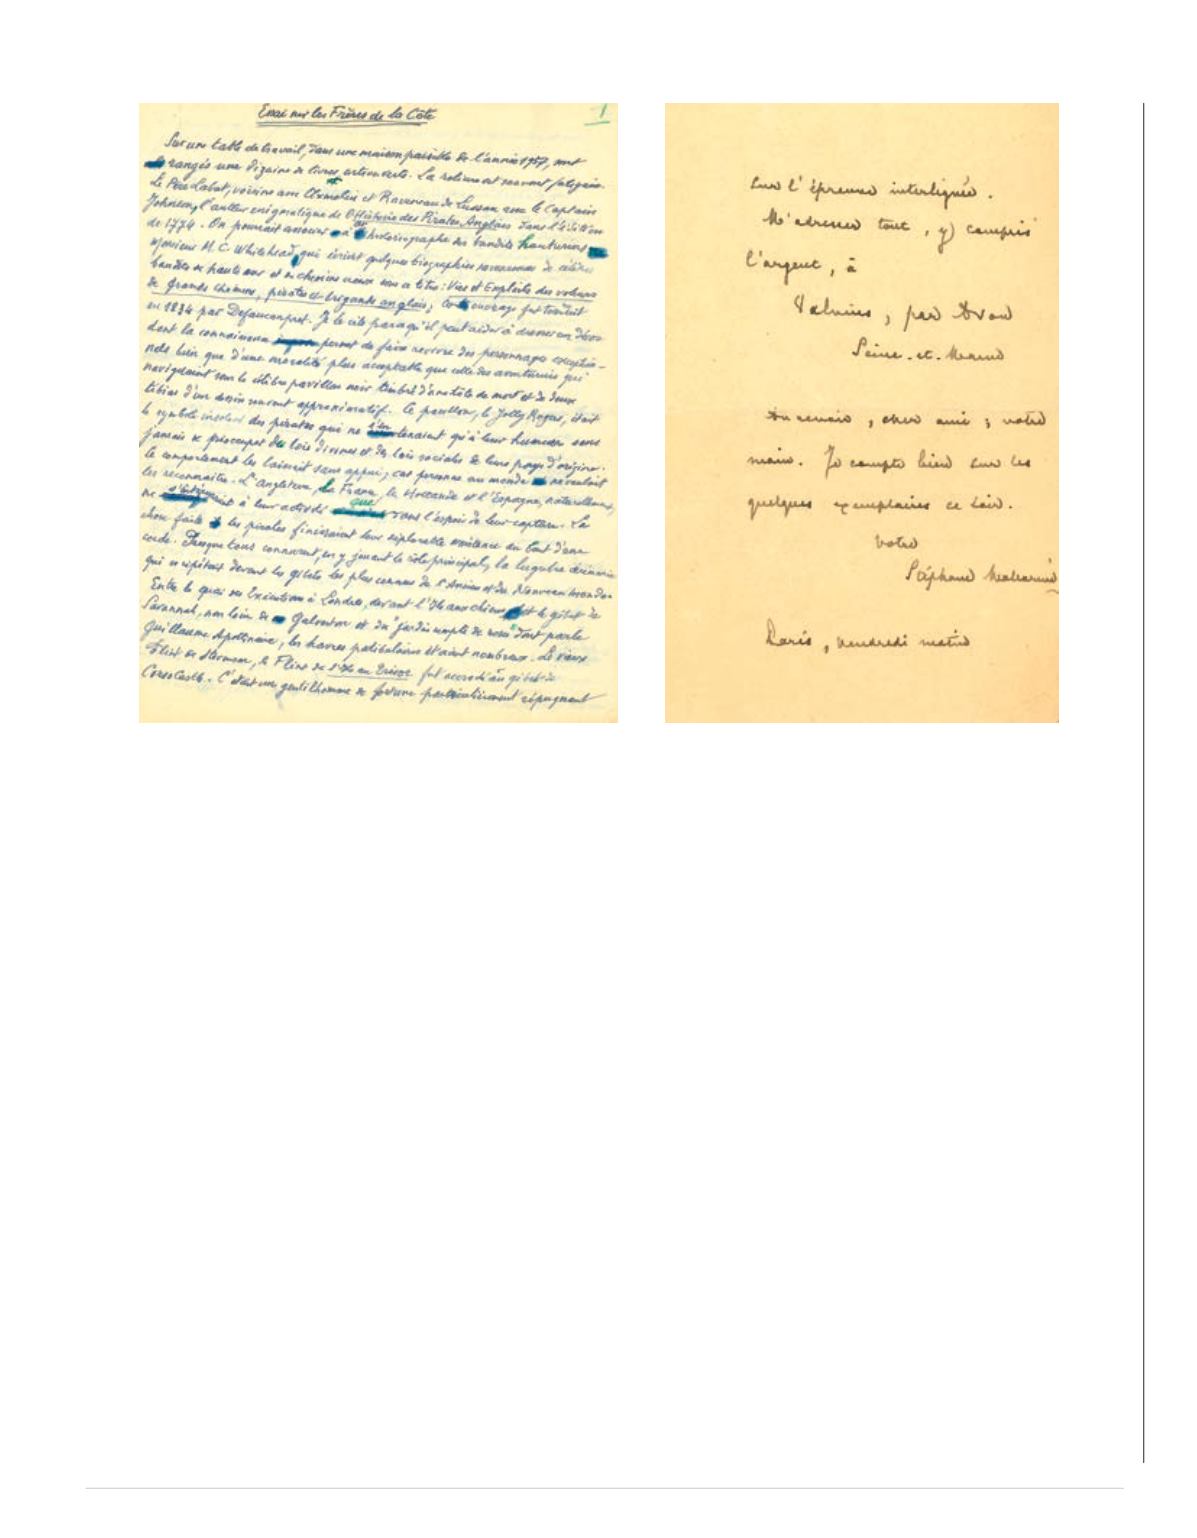 Essai sur les Frères de la Côte
1
Sur une table de travail, dans une maison paisible de l'année 1957, sont
rangés une dizaine de livres, entrouverts. La reliure est souvent fatiguée.
Le Père Labat, voisine avec Oexmelin et Raveneau de Lussan avec le Captain
Johnson, l'auteur énigmatique de l'Histoire des Pirates Anglais dans l'édition
de 1774. On pourrait associer à historiographe des bandits hauturiers
Monsieur M. C. Whitehead, qui écrivit quelques biographies savoureuses de célèbres
bandits de haute mer et de chemins creux sous ce titre : Vies et Exploits des voleurs
de grands chemins, pirates et brigands anglais; ouvrage fut traduit
en 1834 par Defauconpret. Je le cite parce qu'il peut aider à dresser un décor
dont la connaissance permet de faire revivre des personnages exception-
nels bien que d'une moralité plus acceptable que celle des aventuriers qui
naviguaient sous le célèbre pavillon noir timbré d'une tête de mort et de deux
tibias d'un dessin souvent approximatif. Ce pavillon, le Jolly Roger, était
le symbole insolent des pirates qui ne tenaient qu'à leur humeur sans
jamais se préoccuper des lois divines et des lois sociales de leurs pays d'origine.
le comportement les laissait sans appui; car personne au monde ne voulait
les reconnaître. L'Angleterre, la France, la Hollande et l'Espagne, naturellement,
ne à leur activité que dans l'espoir de leur capture. La
chose faite les pirates finissaient leur déplorable existence au bout d'une
corde. Presque tous connurent, en y jouant le rôle principal, la lugubre cérémonie
qui se répétait devant les gibets les plus connus de l'Ancien et du Nouveau monde.
Entre le quai des Exécutions à Londres, devant l'Ile aux chiens et le gibet de
Savannah, non loin de Galveston et du "jardin rempli de roses" dont parle
Guillaume Apollinaire, les havres patibulaires étaient nombreux. Le vieux
Flint de Stevenson, le Flint de l'Ile au Trésor fut accroché au gibet de
Corso Castle. C'était un gentilhomme de fortune particulièrement répugnant
sur l'épreuve interlignée.
M'adresser tout, y compris
l'argent, à
Valvins, par Avon
Seine-et-Marne
Au revoir, cher ami; votre
main. Je compte bien sur les
quelques exemplaires ce soir.
Votre
Stéphane Mallarmé
Paris, vendredi matin